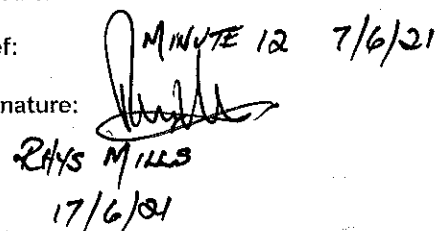 ef: MINUTE 12 7/6/21
nature:
RHYS MILLS
17/6/21